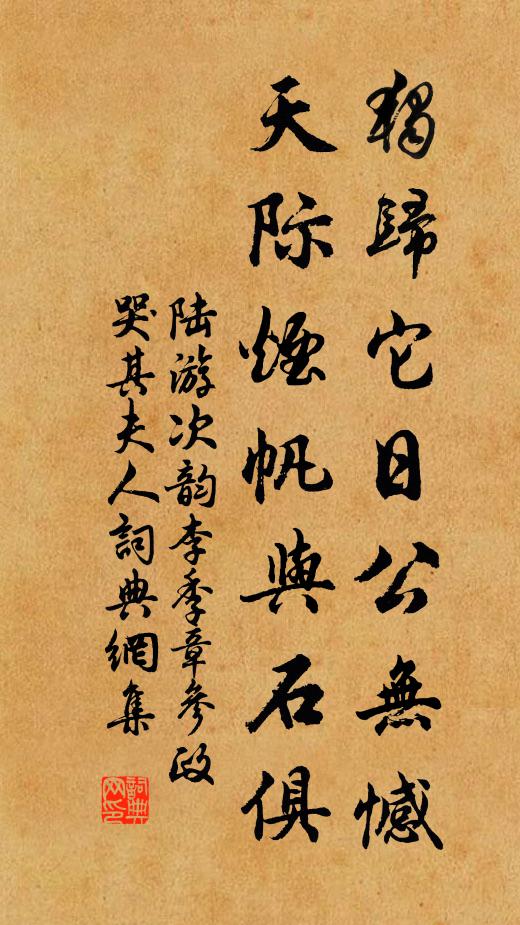 獨歸它日公無憾
天际煙帆與石俱
陆游次韵李季章參政
哭其夫人詞典網集
詞典
网印